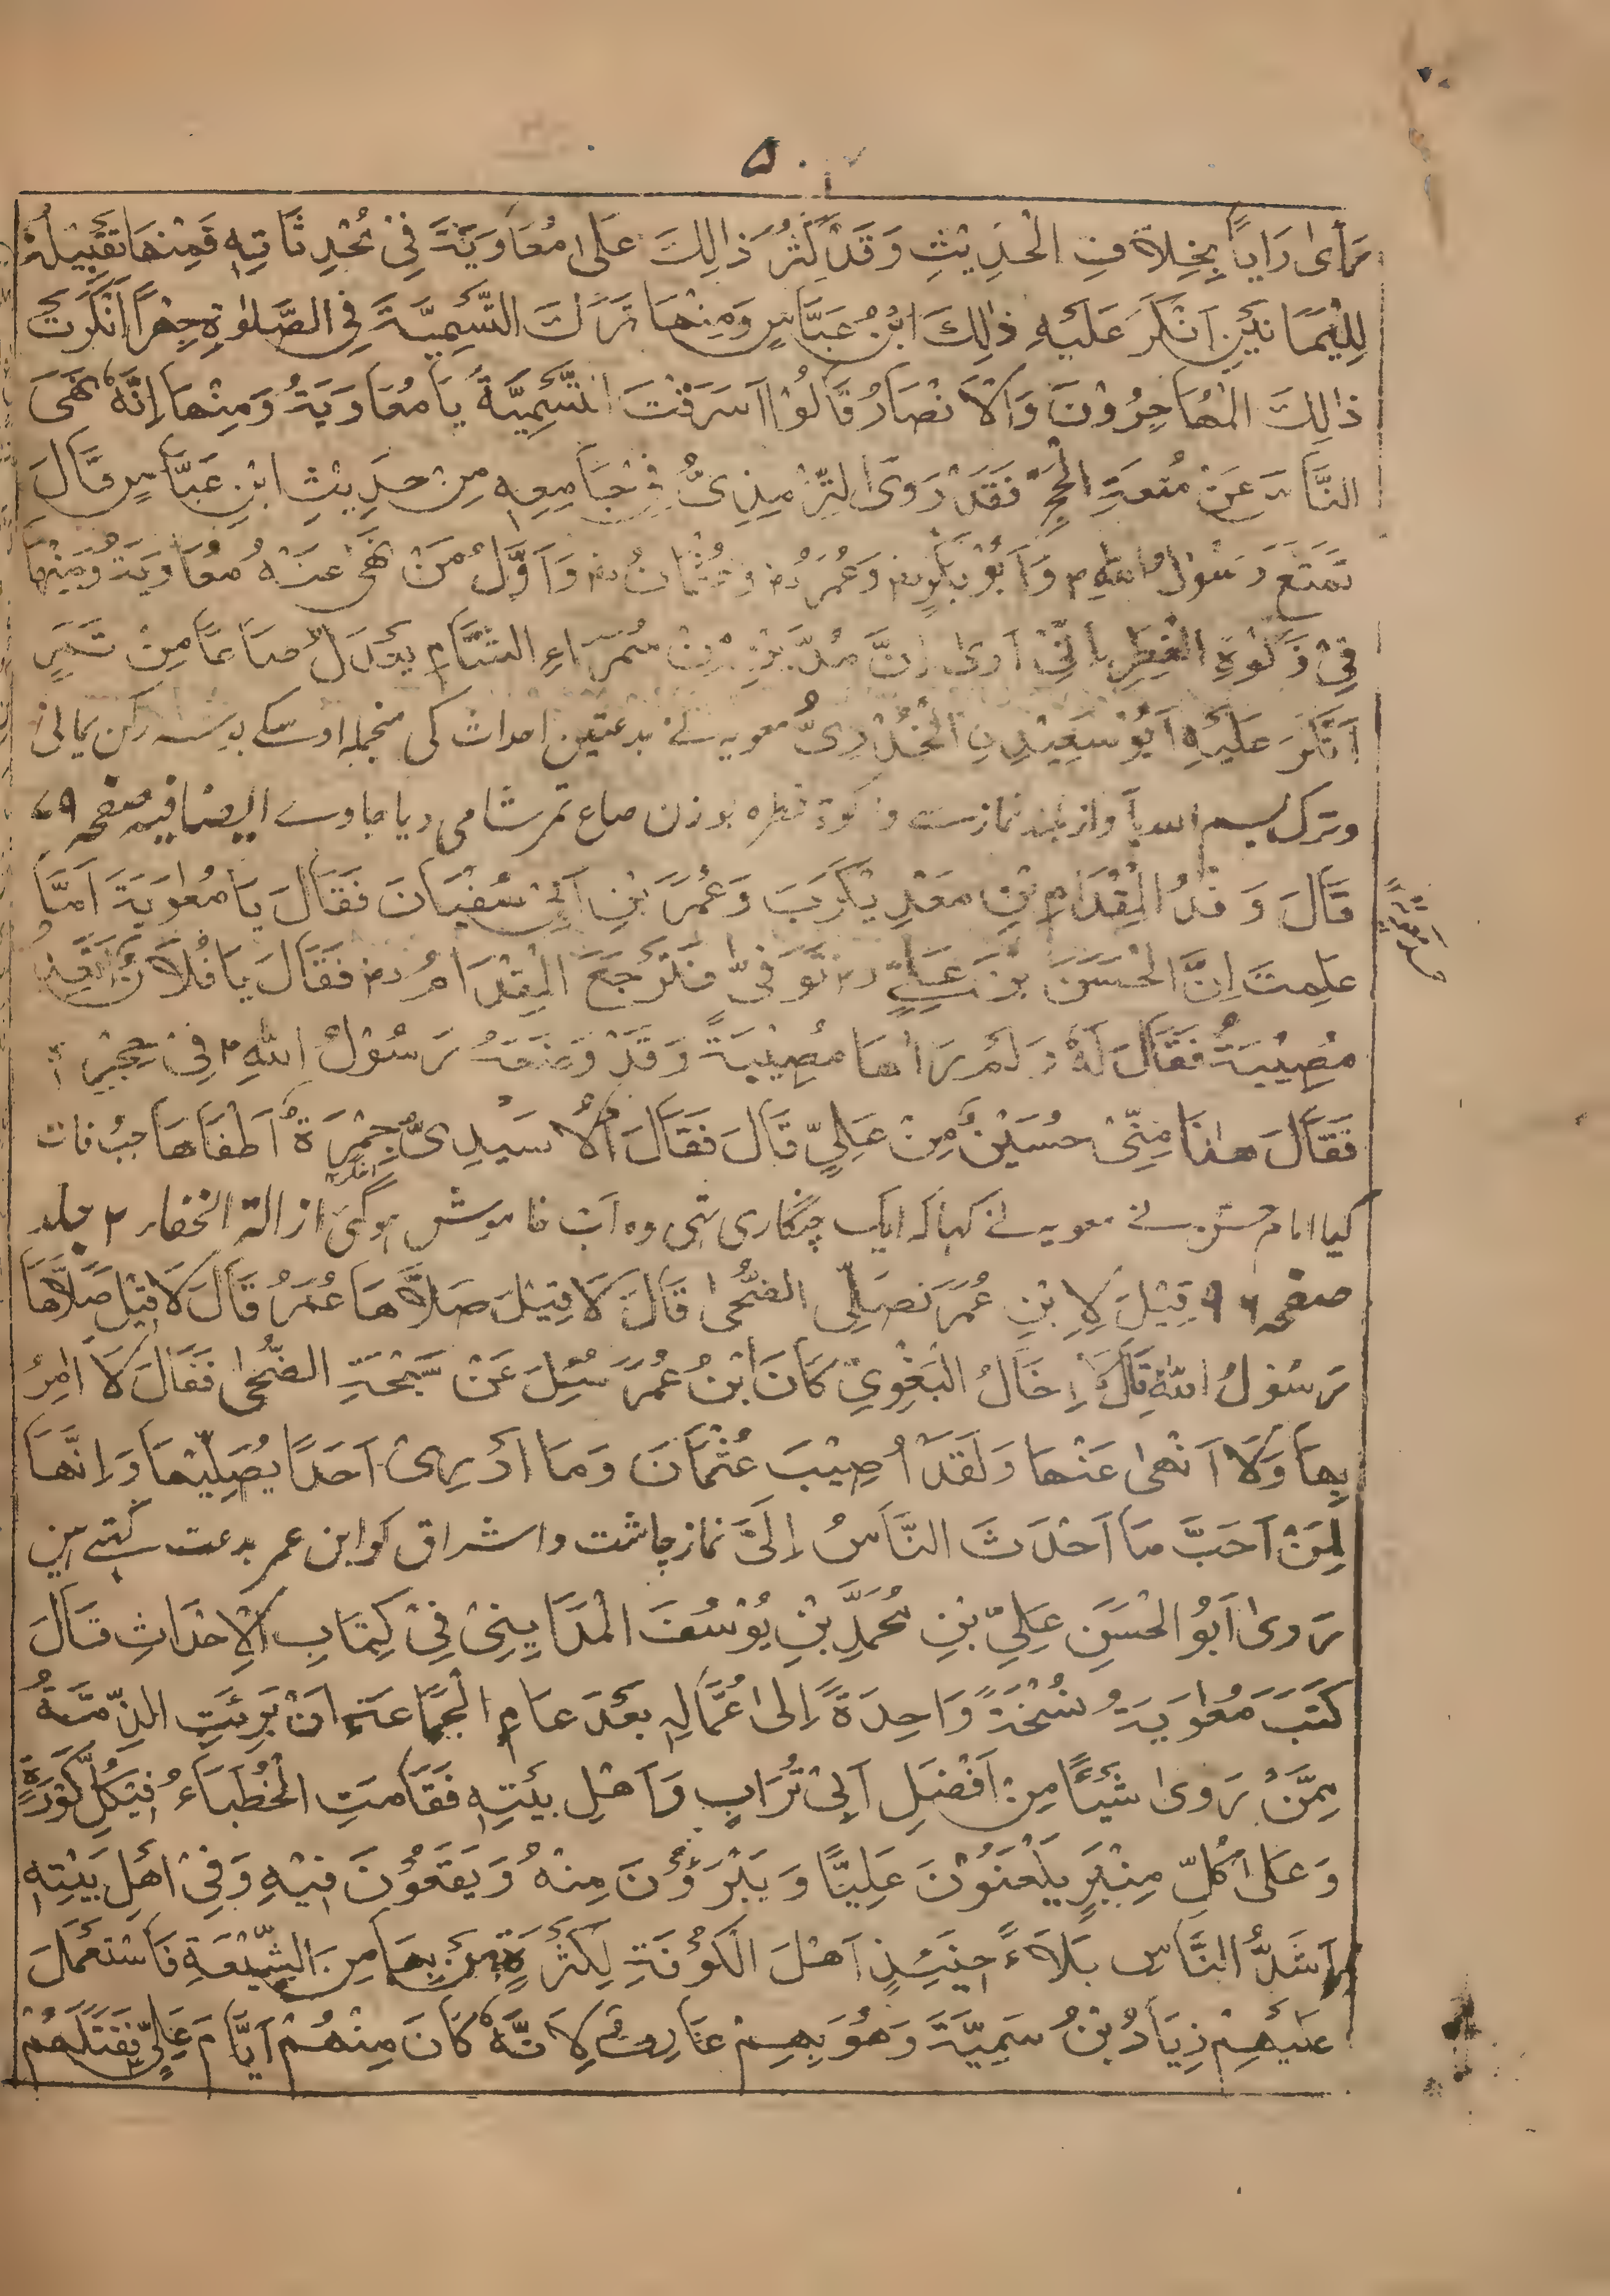 ۵۰
رَأیٰ رَایاً بِخِلَافِ الْحَدِیْثِ وَقَدْ کَثُرَ ذَالِكَ عَلٰی مُعَاوِیَةَ فِیْ مُحْدِثَاتِهٖ فَمِنْهَا تَقْبِیْلُهُ
لِلْیَمَانَیَیْنِ اَنْکَرَ عَلَیْهِ ذٰلِكَ ابْنُ عَبَّاسٍ وَمِنْهَا تَرْكَ التَّسْمِیَّةَ فِی الصَّلٰوةِ جِهْرًا اَنْکَرَتْ
ذٰلِكَ الْمُهَاجِرُوْنَ وَالْاَنْصَارُ قَالُوْا اَسَرَقْتَ التَّسْمِیَّةَ یَا مُعَاوِیَةُ وَمِنْهَا اِنَّهٗ نَهٰی
النَّاسَ عَنْ مُتْعَةِ الْحَجِّ فَقَدْ رَوَی التِّرْمِذِیُّ فِیْ جَامِعِهٖ مِنْ حَدِیْثِ ابْنِ عَبَّاسٍ قَالَ
تَمَتَّعَ رَسُوْلُ اللهِ م وَاَبُوْبَکْرٍ رض وَعُمَرُ رض وَعُثْمَانُ رض وَاَوَّلُ مَنْ نَهٰی عَنْهُ مُعَاوِیَةُ وَمِنْهَا
فِیْ زَکٰوةِ الْفِطْرِ اِنِّیْ اَرٰی اِنَّ مُدَّیْنِ مِنْ سَمْرَاءِ الشَّامِ یَعْدِلُ صَاعًا مِنْ تَمْرٍ
اَنْکَرَ عَلَیْهِ اَبُوْسَعِیْدِنِ الْخُدْرِیُّ معویہ نے بدعتین احداث کی منجملہ اوسکے بوسہ رکن یمانی
وترک بسم اللہ باآواز بلند نماز سے وزکوۃ فطرہ بوزن صاع تمر شامی دیا جاوے ایضا فیہ صفحہ ۷۹
قَالَ وَفْدُ الْمِقْدَامِ بْنِ مَعْدِیْکَرَبَ وَعُمَرَ بْنِ اَبِیْ سُفْیَانَ فَقَالَ یَا مُعٰوِیَةَ اَمَّا
عَلِمْتَ اِنَّ الْحَسَنَ بْنَ عَلِیٍّ رض تَوَفّٰی فَتَرْجَعَ الْمِقْدَامُ رض فَقَالَ یَا فُلَانُ
مُصِیْبَةٌ فَقَالَ لَهٗ وَلَمْ یَرَاهَا مُصِیْبَةً وَقَدْ وَضَعَهُ رَسُوْلُ اللهِ م فِیْ حِجْرِ
فَقَالَ هٰذَا مِنِّیْ حُسَیْنٌ مِنْ عَلِیٍّ قَالَ فَقَالَ الْاَسَیْدِیُّ جَمْرَةٌ اَطْفَاَهَا جب وفات
کیا امام حسن نے معویہ نے کہا کہ ایک چنگاری تہی وہ اب خاموش ہوگئی ازالۃ الخفار ۲ جلد
صفحہ قِیْلَ لِاِبْنِ عُمَرَ نُصَلِّی الضُّحٰی قَالَ لَا قِیْلَ صَلَّاهَا عُمَرُ قَالَ لَا قِیْلَ صَلَّاهَا
رَسُوْلُ اللهِ قَالَ لَا اِخَالُ الْبَغْوِیّ کَانَ ابْنُ عُمَرَ سُئِلَ عَنْ سَبْحَةِ الضُّحٰی فَقَالَ لَا اٰمِرُ
بِهَا وَلَا اَنْهٰی عَنْهَا وَلَقَدْ اُصِیْبَ عُثْمَانَ وَمَا اَدْرِیْ اَحَدًا یُصَلِّیْهَا وَاِنَّهَا
لِمَنْ اَحَبَّ مَا اَحْدَثَ النَّاسُ اِلَیَّ نماز چاشت واشراق کو ابن عمر بدعت کہتے ہین
رَوٰی اَبُوالْحَسَنِ عَلِیِّ بْنِ مُحَمَّدِ بْنِ یُوْسُفَ الْمَدَایِنِیْ فِیْ کِتَابِ الْاَحْدَاثِ قَالَ
کَتَبَ مَعْوِیَةُ نُسْخَةً وَاحِدَةً اِلٰی عُمَّالِهٖ بَعْدَ عَامِ الْجَمَاعَةِ اَنْ بَرِئَتِ الذِّمَّةُ
مِمَّنْ رَوٰی شَیْئًا مِنْ اَفْضَلِ اَبِیْ تُرَابٍ وَاَهْلِ بَیْتِهٖ فَقَامَتِ الْخُطَبَاءُ فِیْ کُلِّ کُوْرَةٍ
وَعَلٰی کُلِّ مِنْبَرٍ یَلْعَنُوْنَ عَلِیًّا وَیَبْرَؤُنَ مِنْهُ وَیَقَعُوْنَ فِیْهِ وَفِیْ اَهْلِ بَیْتِهٖ
اَشَدُّ النَّاسِ بَلَاءً حِیْنَئِذٍ اَهْلَ الْکُوْفَةِ لِکَثْرَةِ مَنْ بِهَا مِنَ الشِّیْعَةِ فَاسْتَعْمَلَ
عَلَیْهِمْ زِیَادُ بْنُ سَمِیَّةَ وَهُوَ بِهِمْ عَارِفٌ لِاَنَّهٗ کَانَ مِنْهُمْ اَیَّامَ عَلِیٍّ فَقَتَلَهُمْ